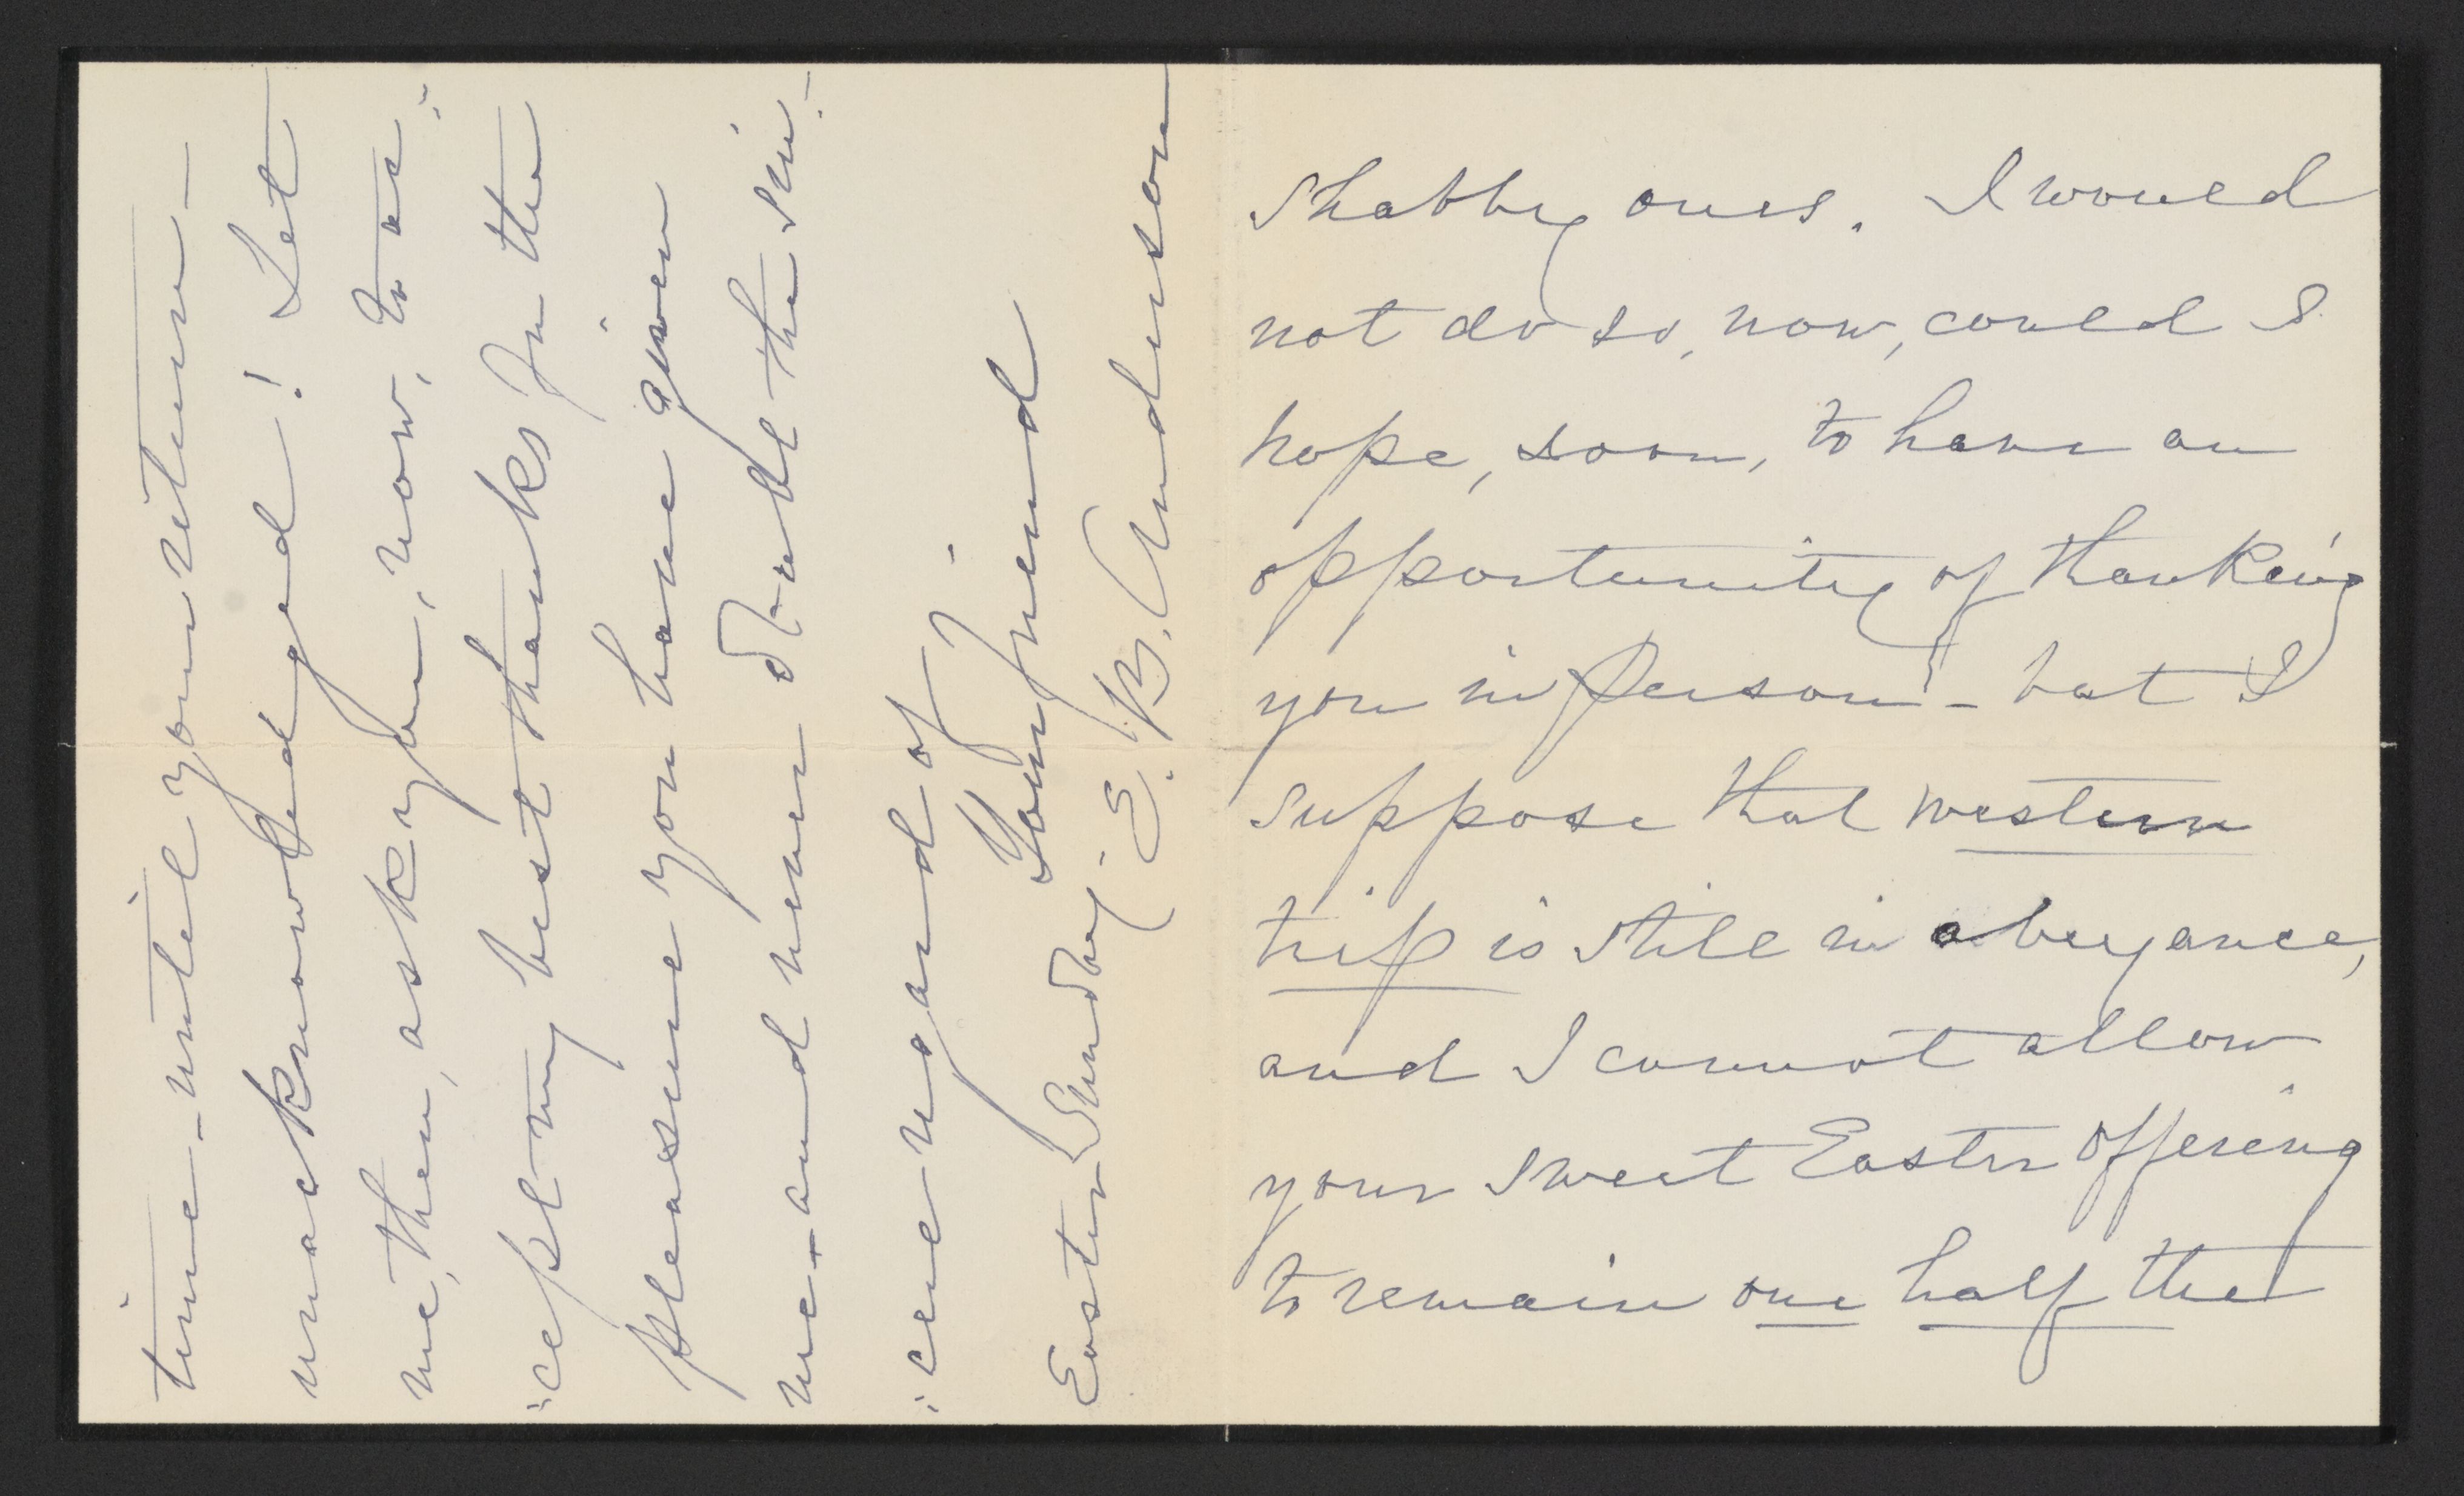 shabby ones. I would
not do so, now, could I
hope, soon, to have an
opportunity of thanking
you in person - but I
suppose that western
trip is still in abeyance,
and I cannot allow
your sweet Easter offering
to remain one half the
time - until your return -
unacknowledged! Let
me, then, ask you, now, to ac-
-cept my best thanks for the
pleasure you have given
me - and never doubt the sin-
-cere regard of
Your friend
E. B. Anderson
Easter Sunday -